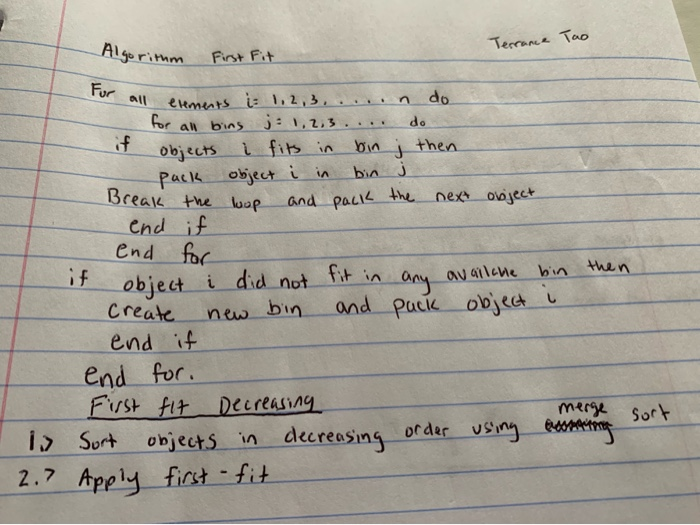 Terrance Tao
Algorithm First Fit
For all elements i= 1,2,3, ..... n do
for all bins j= 1,2,3 .... do
if objects i fits in bin j then
pack object i in bin j
Break the loop and pack the next object
end if
end for
if object i did not fit in any availche bin then
create new bin and pack object i
end if
end for.
First fit Decreasing
1.> Sort objects in decreasing order using merge sort
2.> Apply first-fit